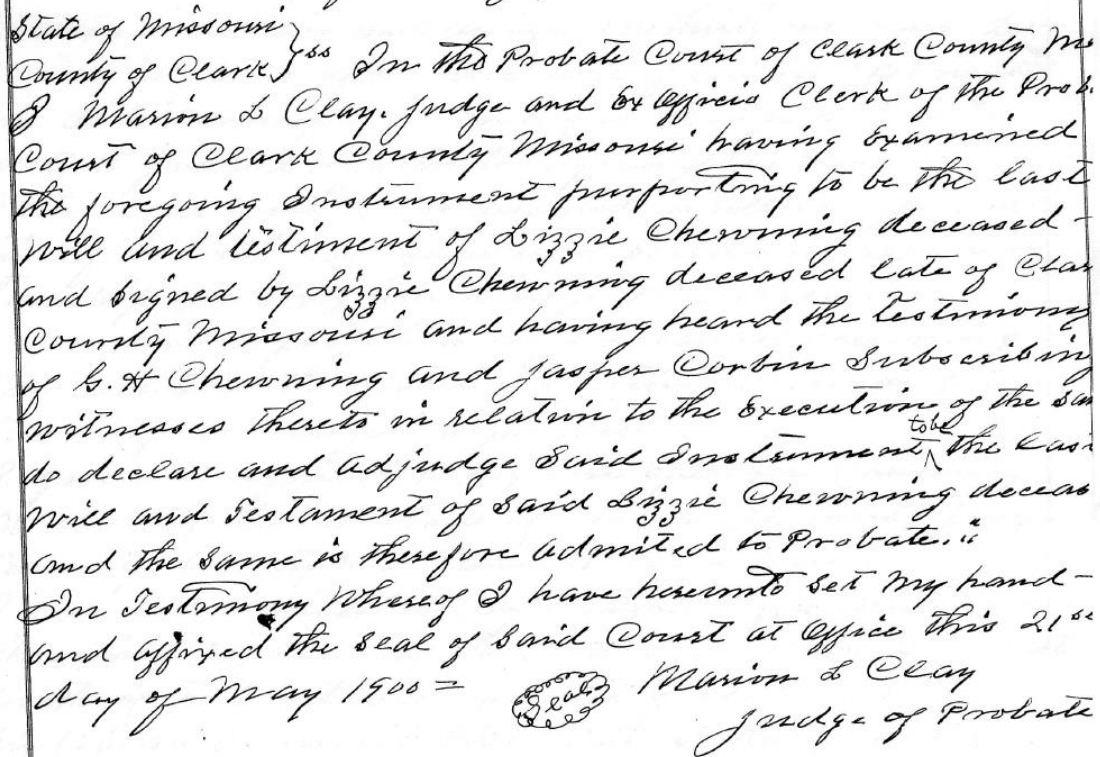 State of Missouri
County of Clark } ss In the Probate Court of Clark County Mo
I Marion L Clay. Judge and Ex Officio Clerk of the Prob.
Court of Clark County Missouri having Examined
the foregoing Instrument purporting to be the last
Will and testiment of Lizzie Chewning deceased -
and Signed by Lizzie Chewning deceased late of Clar
County Missouri and having heard the testimony
of G. H Chewning and Jasper Corbin Subscribing
witnesses thereto in relation to the Execution of the sam
do declare and adjudge Said Instrument to be the Last
Will and Testament of Said Lizzie Chewning deceas
and the Same is therefore admited to Probate. "
In Testimony Whereof I have hereunto Set My hand -
and affixed the Seal of Said Court at Office this 21st
day of May 1900 = Seal Marion L Clay
Judge of Probate